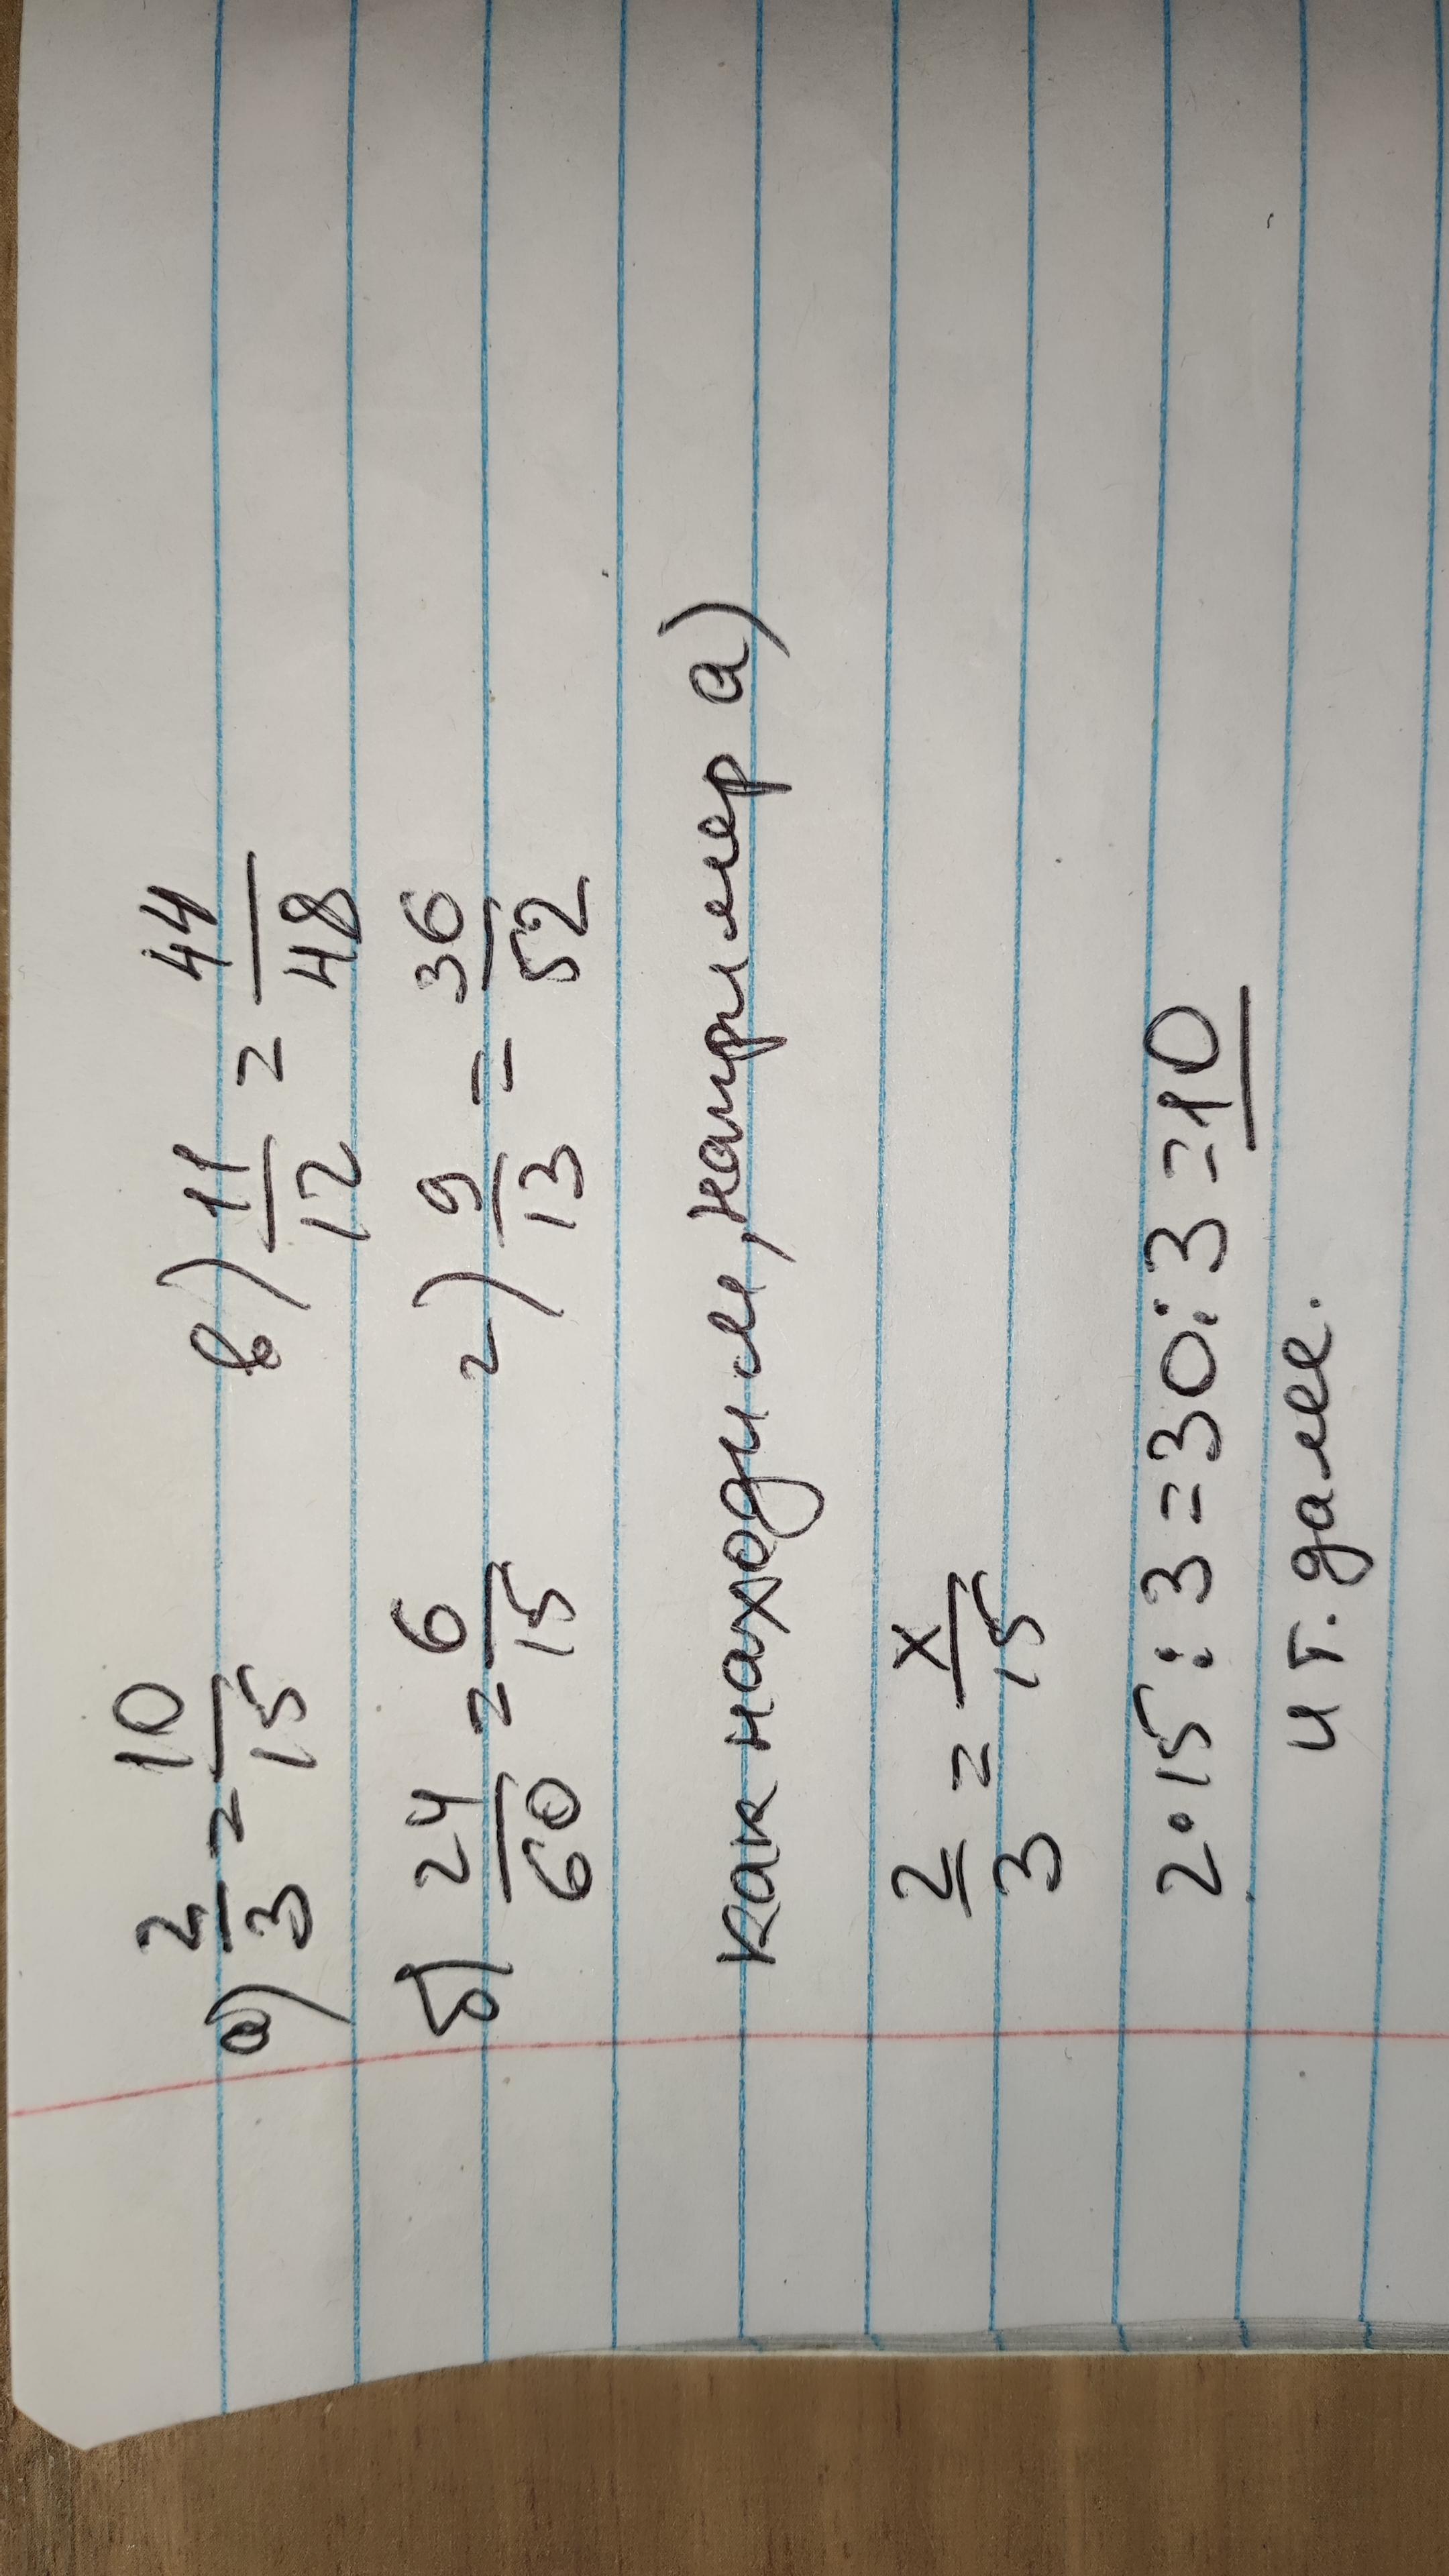 а) 2/3 = 10/15 в) 11/12 = 44/48
б) 24/60 = 6/15 г) 9/13 = 36/52
как находим, например а)
2/3 = x/15
2·15:3=30:3=10
и т. далее.